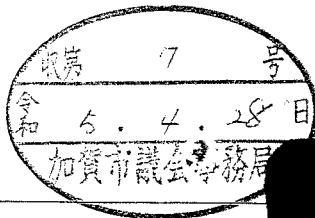 収第 7 号
令和 5. 4. 28 日
加賀市議会事務局